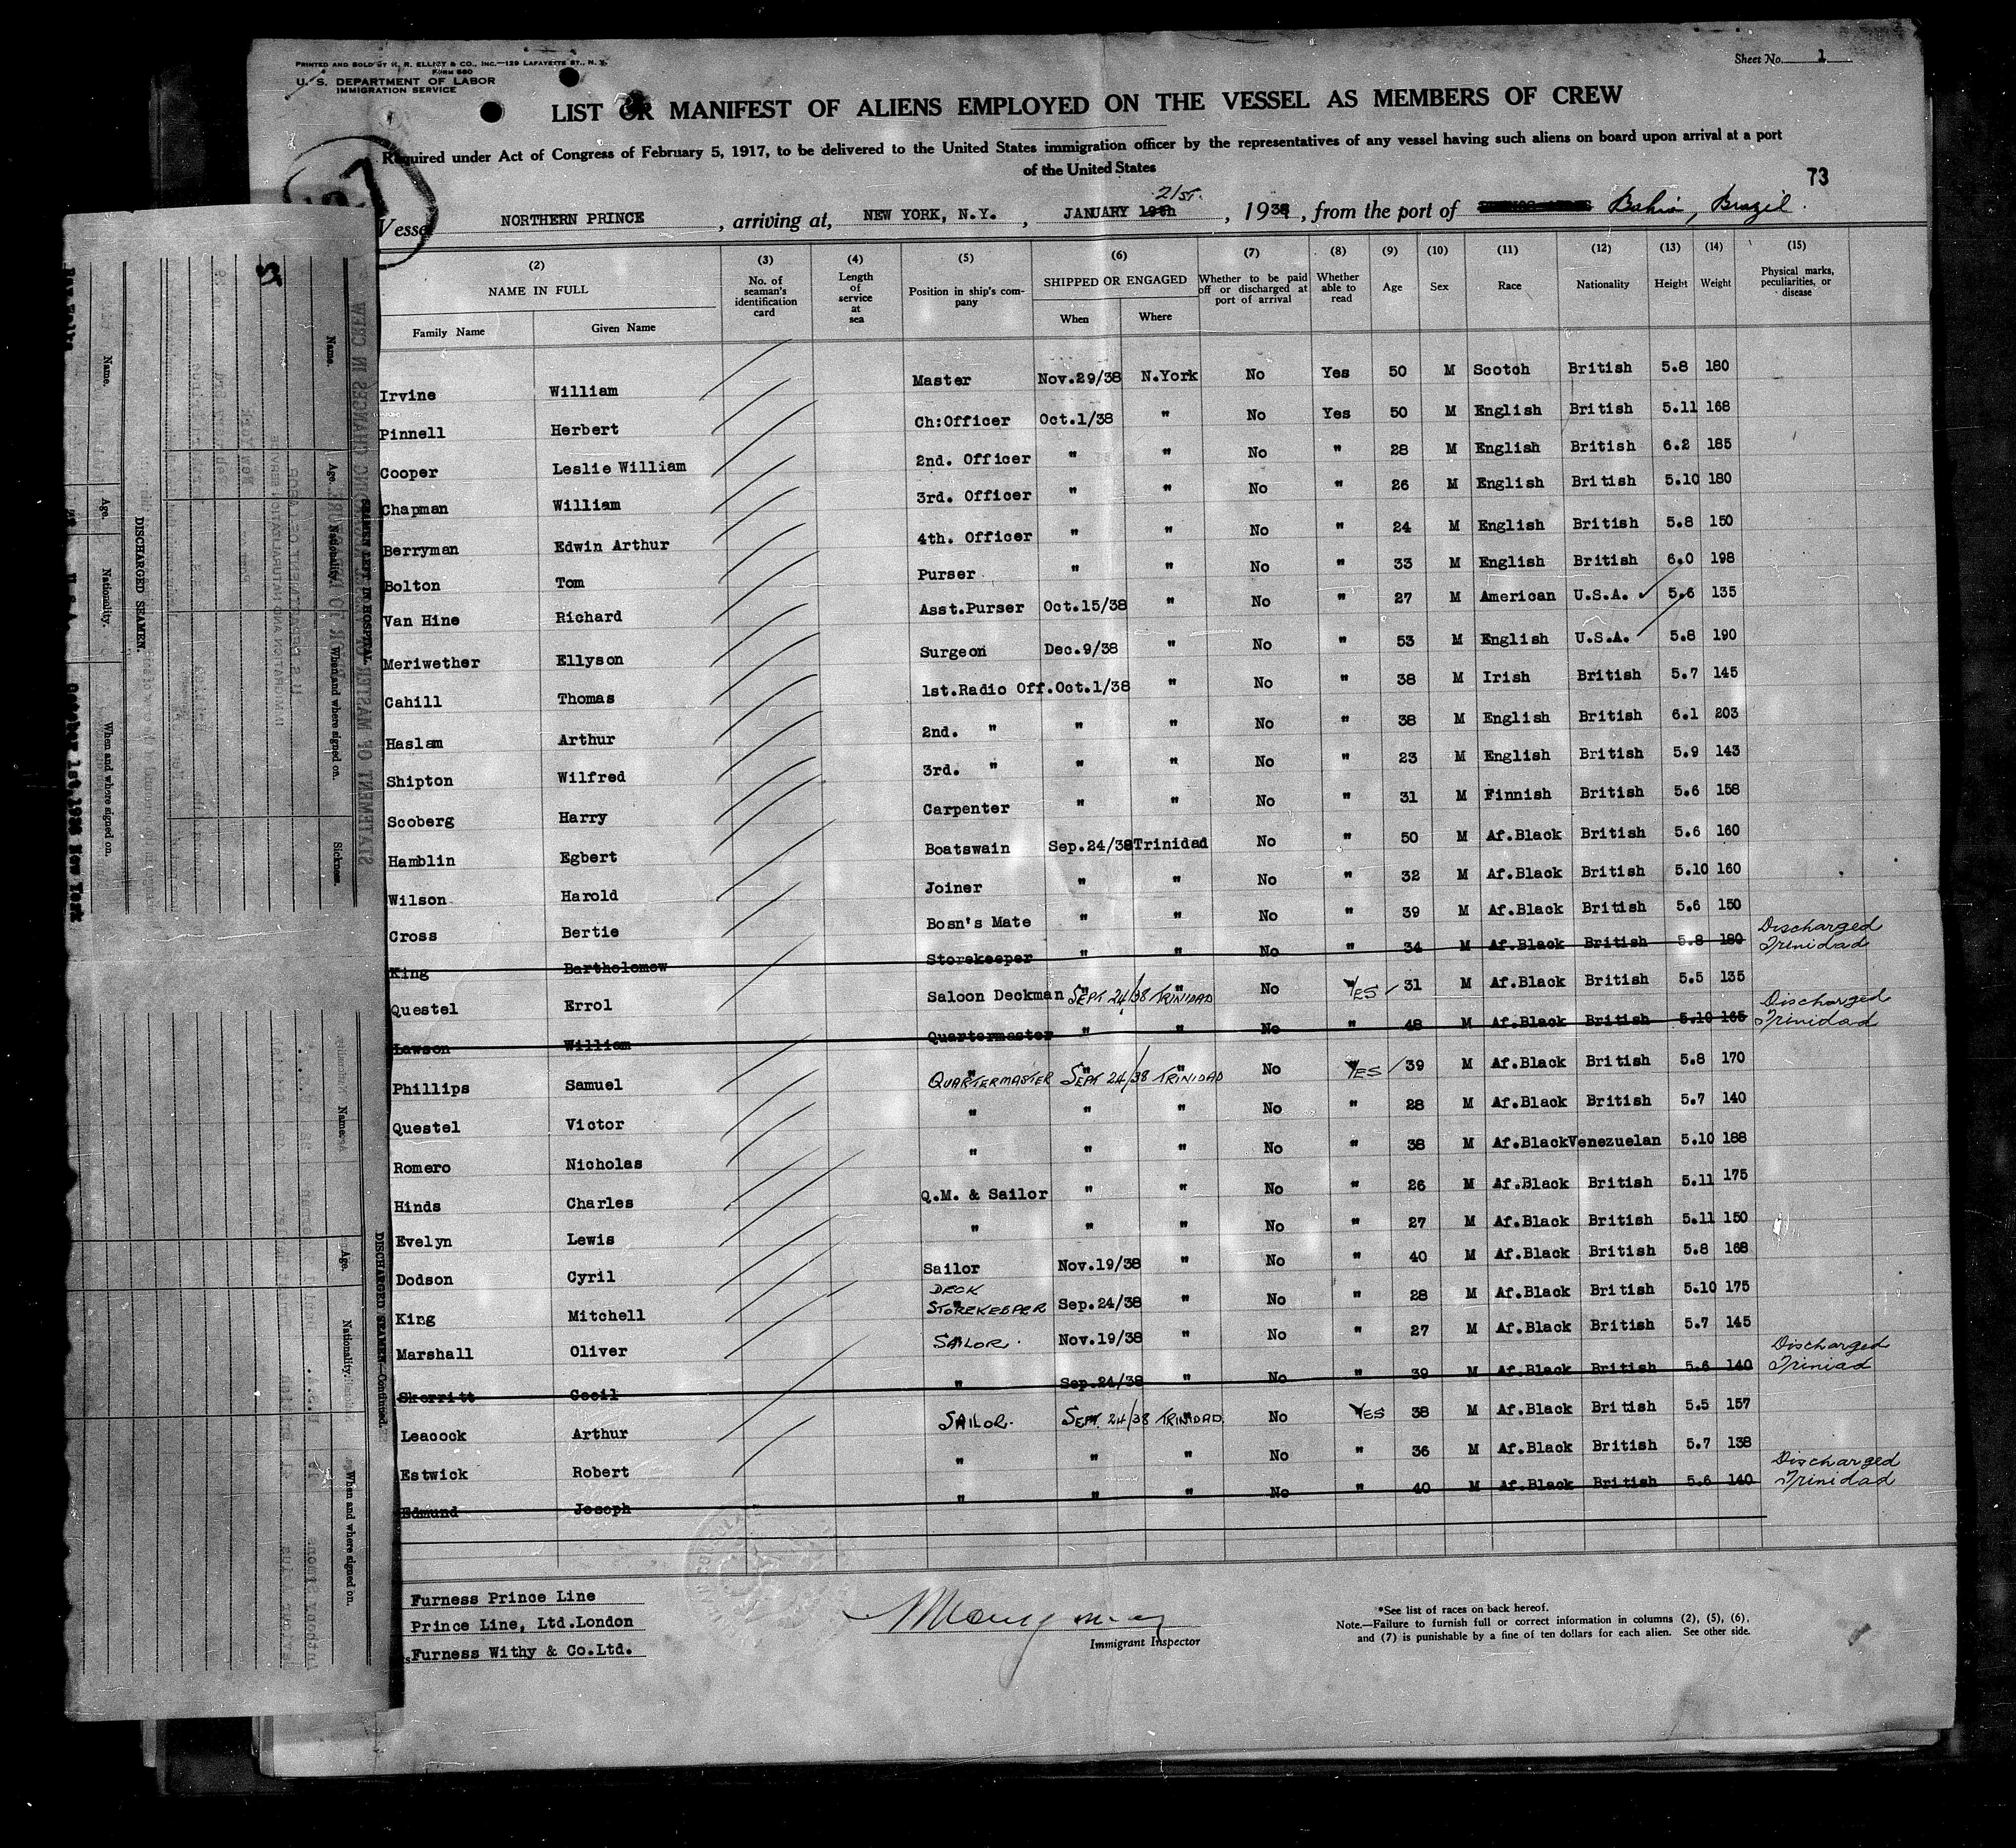 PRINTED AND SOLD BY H. R. ELLIOT & CO., INC.—129 LAFAYETTE ST., N. Y.
FORM 680
U. S. DEPARTMENT OF LABOR
IMMIGRATION SERVICE
Sheet No. 1
LIST OR MANIFEST OF ALIENS EMPLOYED ON THE VESSEL AS MEMBERS OF CREW
Required under Act of Congress of February 5, 1917, to be delivered to the United States immigration officer by the representatives of any vessel having such aliens on board upon arrival at a port
of the United States
73
Vessel NORTHERN PRINCE, arriving at, NEW YORK, N.Y., JANUARY 19th 21st., 193, from the port of Bahia, Brazil.
(2) NAME IN FULL Family Name Given Name
(3) No. of seaman's identification card
(4) Length of service at sea
(5) Position in ship's company
(6) SHIPPED OR ENGAGED When Where
(7) Whether to be paid off or discharged at port of arrival
(8) Whether able to read
(9) Age
(10) Sex
(11) Race
(12) Nationality
(13) Height
(14) Weight
(15) Physical marks, peculiarities, or disease
Irvine William Master Nov.29/38 N.York No Yes 50 M Scotch British 5.8 180
Pinnell Herbert Ch:Officer Oct.1/38 " No Yes 50 M English British 5.11 168
Cooper Leslie William 2nd. Officer " " No " 28 M English British 6.2 185
Chapman William 3rd. Officer " " No " 26 M English British 5.10 180
Berryman Edwin Arthur 4th. Officer " " No " 24 M English British 5.8 150
Bolton Tom Purser " " No " 33 M English British 6.0 198
Van Hine Richard Asst.Purser Oct.15/38 " No " 27 M American U.S.A. 5.6 135
Meriwether Ellyson Surgeon Dec.9/38 " No " 53 M English U.S.A. 5.8 190
Cahill Thomas 1st.Radio Off. Oct.1/38 " No " 38 M Irish British 5.7 145
Haslam Arthur 2nd. " " " No " 38 M English British 6.1 203
Shipton Wilfred 3rd. " " " No " 23 M English British 5.9 143
Scoberg Harry Carpenter " " No " 31 M Finnish British 5.6 158
Hamblin Egbert Boatswain Sep.24/38 Trinidad No " 50 M Af.Black British 5.6 160
Wilson Harold Joiner " " No " 32 M Af.Black British 5.10 160
Cross Bertie Bosn's Mate " " No " 39 M Af.Black British 5.6 150
King Bartholomew Storekeeper " " No " 34 M Af.Black British 5.8 180 Discharged Trinidad
Questel Errol Saloon Deckman SEPT 24/38 TRINIDAD No YES 31 M Af.Black British 5.5 135
Lawson William Quartermaster " " No " 48 M Af.Black British 5.10 165 Discharged Trinidad
Phillips Samuel QUARTERMASTER SEPT 24/38 TRINIDAD No YES 39 M Af.Black British 5.8 170
Questel Victor " " " No " 28 M Af.Black British 5.7 140
Romero Nicholas " " " No " 38 M Af.Black Venezuelan 5.10 188
Hinds Charles Q.M. & Sailor " " No " 26 M Af.Black British 5.11 175
Evelyn Lewis " " " No " 27 M Af.Black British 5.11 150
Dodson Cyril Sailor Nov.19/38 " No " 40 M Af.Black British 5.8 168
King Mitchell DECK STOREKEEPER Sep.24/38 " No " 28 M Af.Black British 5.10 175
Marshall Oliver SAILOR. Nov.19/38 " No " 27 M Af.Black British 5.7 145
Skerritt Cecil " Sep.24/38 " No " 39 M Af.Black British 5.6 140 Discharged Triniad
Leacock Arthur SAILOR. SEPT. 24/38 TRINIDAD. No YES 38 M Af.Black British 5.5 157
Estwick Robert " " " No " 36 M Af.Black British 5.7 138
Edmund Joseph " " " No " 40 M Af.Black British 5.6 140 Discharged Trinidad
Furness Prince Line
Prince Line, Ltd.London
Furness Withy & Co.Ltd.
Immigrant Inspector
*See list of races on back hereof.
Note.—Failure to furnish full or correct information in columns (2), (5), (6),
and (7) is punishable by a fine of ten dollars for each alien. See other side.
STATEMENT OF MASTER
SEAMEN LEFT IN HOSPITAL
Name. Age. Nationality. When and where signed on. Sickness.
U.S. DEPARTMENT OF LABOR
IMMIGRATION AND NATURALIZATION SERVICE
DISCHARGED SEAMEN.
Name. Age. Nationality. When and where signed on.
DISCHARGED SEAMEN—Continued.
Name. Age. Nationality. When and where signed on.